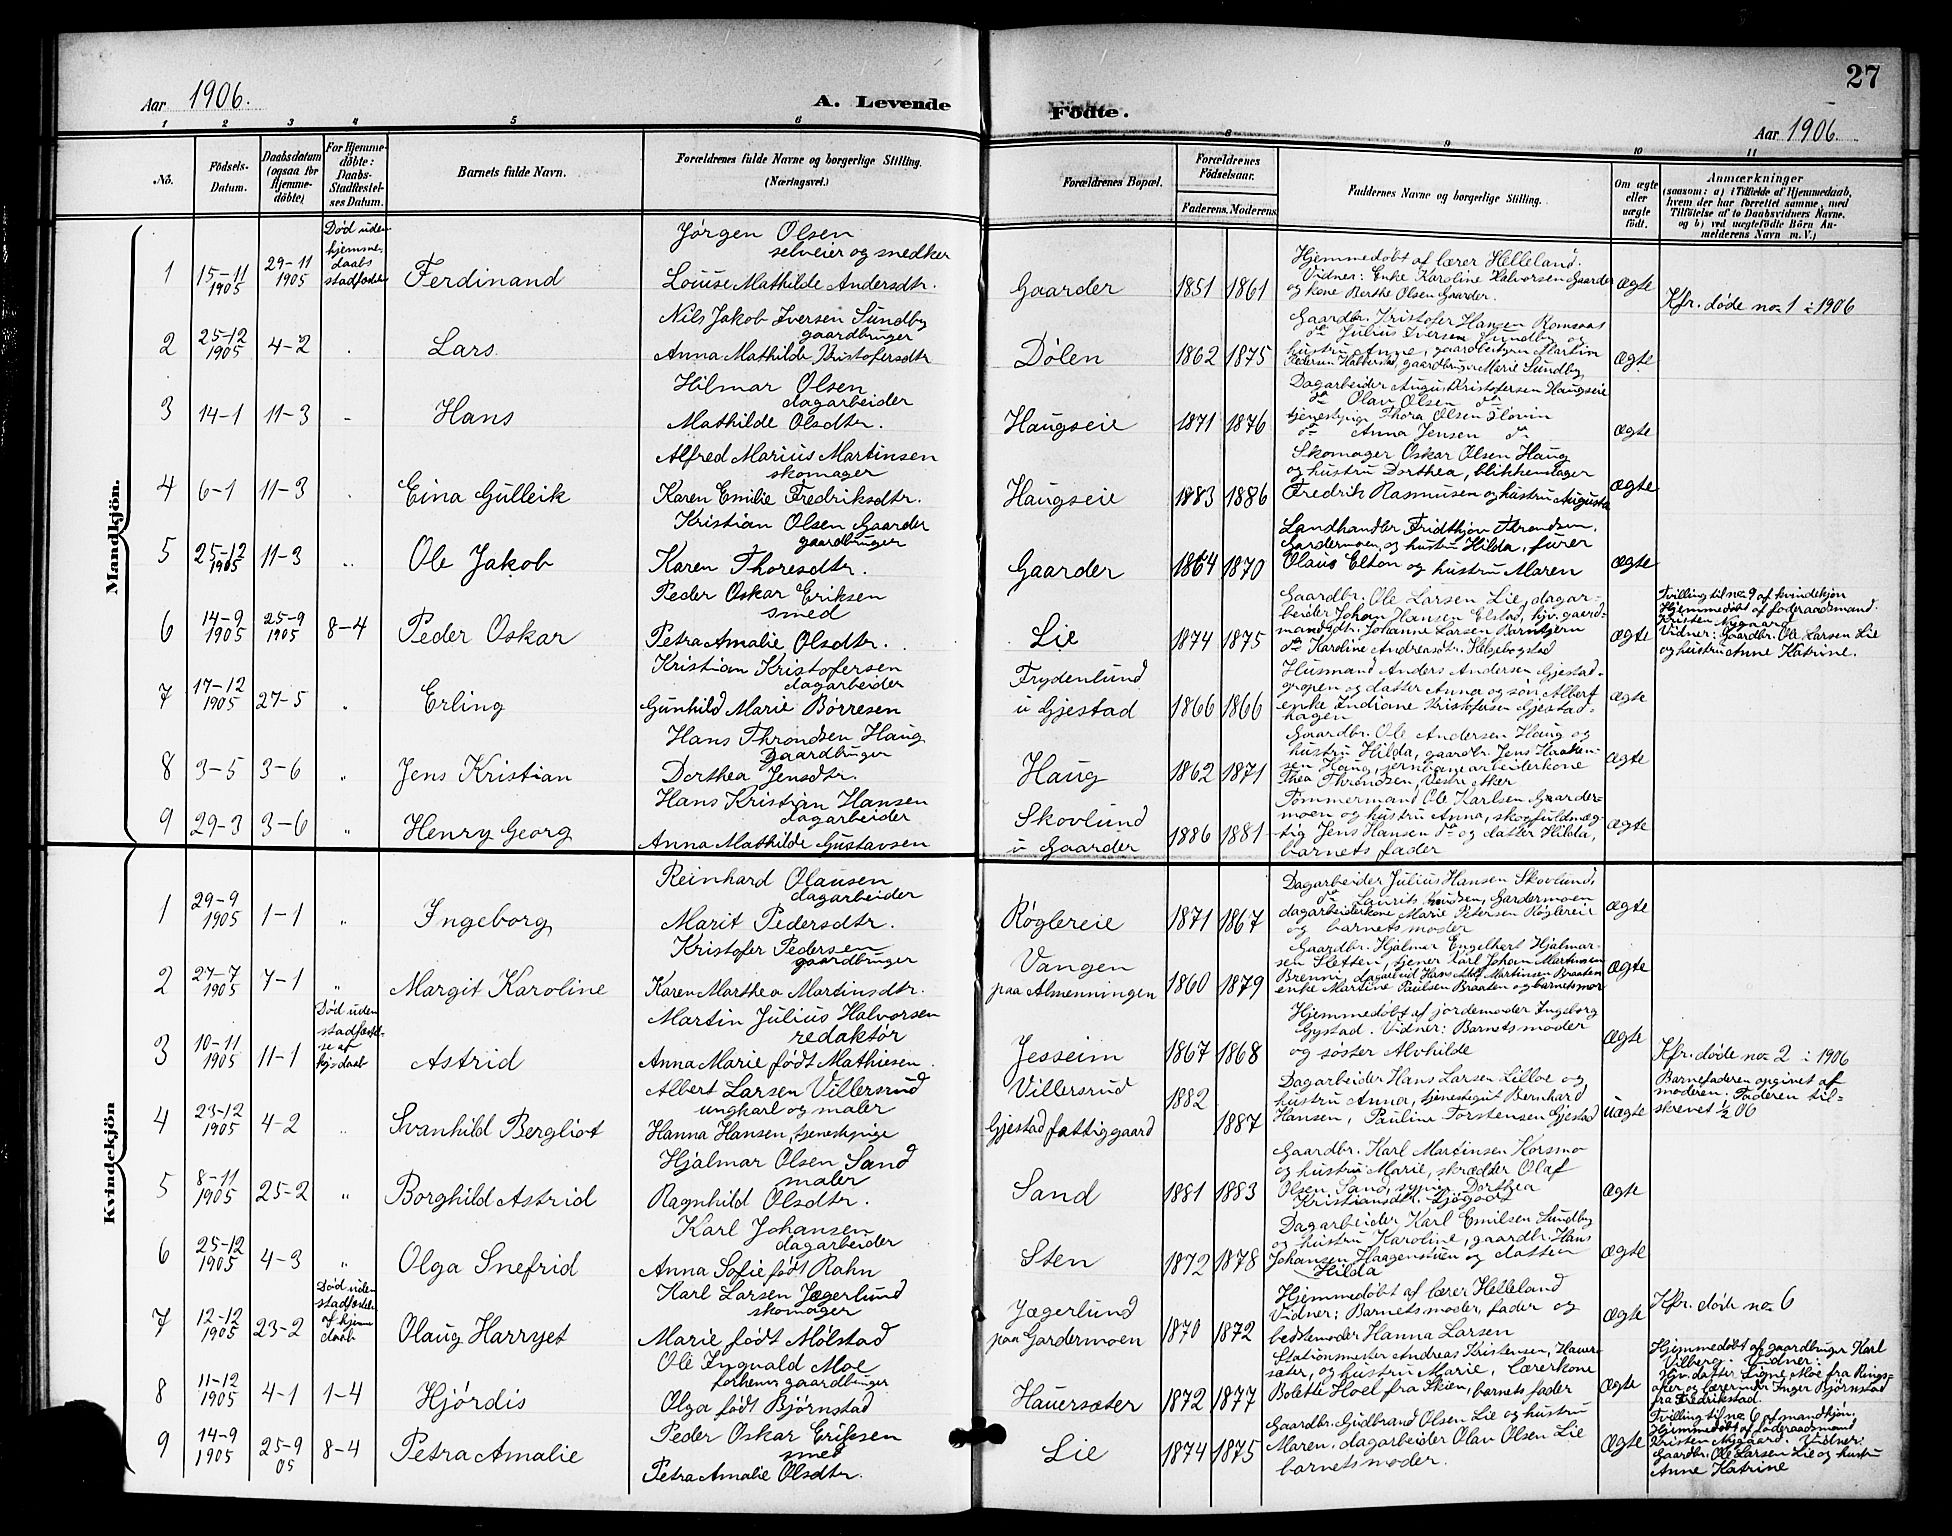 Aar 1906.
A. Levende
Fødte.
27
Aar 1906
1 2 3 4 5 6 8 9 10 11
No.
Fødsels-
Datum.
Daabsdatum
(ogsaa for
Hjemme-
døbte)
For Hjemme-
døbte:
Daabs-
Stadfæstel-
ses Datum.
Barnets fulde Navn.
Forældrenes fulde Navne og borgerlige Stilling.
(Næringsvei.)
Forældrenes Bopæl.
Forældrenes
Fødselsaar.
Faderens. Moderens.
Faddernes Navne og borgerlige Stilling.
Om ægte
eller
uægte
født.
Anmærkninger
(saasom: a) i Tilfælde af Hjemmedaab,
hvem der har forrettet samme, med
Tilføielse af to Daabsvidners Navne.
og b) ved uægtefødte Børn An-
melderens Navn m. V.)
Mandkjön.
1
15-11
1905
29-11
1905
Død uden
hjemme-
daabs
stadfæste
Ferdinand
Jørgen Olsen
selveier og snedker
Louise Mathilde Andersdtr.
Gaarder
1851 1861
Hjemmedøbt af lærer Helleland.
Vidner: Enke Karoline Halvorsen Gaarder
og kone Berthe Olsen Gaarder.
Ægte
Kfr. døde no 1 : 1906
2
25-12
1905
4-2
Lars
Nils Jakob Iversen Sundby
gaardbruger
Anna Mathilde Kristofersdtr
Dølen
1862 1875
Gaardbr. Kristofer Hansen Romsaas
do Julius Iversen Sundby og
hustru Anne, gaardbestyrer Martin
Pedersen Halterud, gaardbruger Marie Sundby
Ægte
3
14-1
11-3
Hans
Hilmar Olsen
dagarbeider
Mathilde Olsdtr.
Haugseie
1871 1876
Dagarbeider August Kristofersen Haugseie
do Olav Olsen do
tjenestepige Thora Olsen Flovin
do Anna Jensen do
Ægte
4
6-1
11-3
Eina Gulleik
Alfred Marius Martinsen
skomager
Karen Emilie Fredriksdtr.
Haugseie
1883 1886
Skomager Oskar Olsen Haug
og hustru Dorthea, blikkenslager
Fredrik Rasmusen og hustru Augusta
Ægte
5
25-12
1905
11-3
Ole Jakob
Kristian Olsen Gaarder
gaardbruger
Karen Thoresdtr.
Gaarder
1864 1870
Landhandler Fridthjov Throndsen.
Gardermoen og hustru Hilda, furer
Olaus Elton og hustru Maren
Ægte
6
14-9
1905
25-9
1905
8-4
Peder Oskar
Peder Oskar Eriksen
smed
Petra Amalie Olsdtr.
Lie
1874 1875
Gaardbr. Ole Larsen Lie, dagar-
beider Johan Hansen Elstad, hjv. gaard-
mandsdtr. Johanne Larsen Barntjern
do Karoline Andreasdtr. Helgebogstad
Ægte
Tvilling til no 9 af kvindekjøn
Hjemmedøbt af føderaadsmand.
Kristen Nygaard
Vidner: Gaardbr. Ole Larsen Lie
og hustru Anne Katrine.
7
17-12
1905
27-5
Erling
Kristian Kristofersen
dagarbeider
Gunhild Marie Børresen
Frydenlund
u Gjestad
1866 1866
Husmand Anders Andersen Gjestad-
gropen og datter Anna og søn Albert
enke Indiane Kristofersen Gjestad-
hagen
Ægte
8
3-5
3-6
Jens Kristian
Hans Throndsen Haug
Gaardbruger
Dorthea Jensdtr.
Haug
1862 1871
Gaardbr. Ole Andersen Haug og
hustru Hilda, gaardbr. Jens Haaken-
sen Haug, jernbanearbeiderkone
Thea Throndsen, Vestre Aker
Ægte
9
29-3
3-6
Henry Georg
Hans Kristian Hansen
dagarbeider
Anna Mathilde Gustavsen
Skovlund
u Gaarder
1886 1881
Tømmermand Ole Karlsen Gaarder-
moen og hustru Anna, skogfuldmæg-
tig Jens Hansen do og datter Hilda,
barnets fader
Ægte
Kvindekjön
1
29-9
1905
1-1
Ingeborg
Reinhard Olausen
dagarbeider
Marit Pedersdtr.
Røglereie
1871 1867
Dagarbeider Julius Hansen Skovlund,
do Laurits Knudsen, Gardermoen
dagarbeiderkone Marie Petersen Røglereie
og barnets moder
Ægte
2
27-7
1905
7-1
Margit Karoline
Kristofer Pedersen
gaardbruger
Karen Marthea Martinsdtr.
Vangen
paa Almenningen
1860 1879
Gaardbr. Hjalmer Engelhert Hjalmar-
sen Sletten, tjener Karl Johan Martinsen
Brenni, dagarbeid Hans Adolf Martinsen Braaten
enke Martine Paulsen Braaten og barnets mor
Ægte
3
10-11
1905
11-1
Død uden
stadfæstel-
se af
hjdaab
Astrid
Martin Julius Halvorsen
redaktør
Anna Marie født Mathiesen.
Jesseim
1867 1868
Hjemmedøbt af jordemoder Ingeborg
Gystad. Vidner: Barnets moder
og søster Alvhilde
Ægte
Kfr. døde no 2 : 1906
4
23-12
1905
4-2
Svanhild Bergliot
Albert Larsen Villersrud
ungkarl og maler
Hanna Hansen, tjenestepige
Villersrud
Gjestad fattiggaard
1882
1887
Dagarbeider Hans Larsen Lilloe og
hustru Anna, tjenestegut Bernhard
Hansen, Pauline Torstensen Gjestad
uægte
Barnefaderen opgivet af
moderen. Faderen til-
skrevet 1/2 06
5
8-11
1905
25-2
Borghild Astrid
Hjalmar Olsen Sand
maler
Ragnhild Olsdtr.
Sand
1881 1883
Gaardbr. Karl Martinsen Korsmo
og hustru Marie, skrædder Olaf
Olsen Sand, syerske Dorthea
Kristiansdtr. Sjøgaard
Ægte
6
25-12
1905
4-3
Olga Snefrid
Karl Johansen
dagarbeider
Anna Sofie født Rahn
Sten
1872 1878
Dagarbeider Karl Emilsen Sundby
og hustru Karoline, gaardbr. Hans
Johansen Haagenstuen og datter
Hilda
Ægte
7
12-12
1905
23-2
Død uden
stadfæstelse
af hjemme
daab
Olaug Harryet
Karl Larsen Jægerlund
skomager
Marie født Mølstad
Jægerlund
paa Gardermoen
1870 1872
Hjemmedøbt af lærer Helleland
Vidner: Barnets moder, fader og
bedstemoder Hanna Larsen
Ægte
Kfr. døde no 6
8
11-12
1905
4-1
1-4
Hjørdis
Ole Ingvald Moe
forhenv gaardbruger
Olga født Bjørnstad
Hauersæter
1872 1877
Stationsmester Andreas Kristensen, Hauer-
sæter, og hustru Marie, Lærerkone
Bolette Hoel fra Skien, barnets fader
Ægte
Hjemmedøbt af gaardbruger Karl
Vilberg. Vidner:
Hjv. datter Signe Moe fra Rings-
aker og lærerinde Inger Bjørnstad
fra Fredrikstad.
9
14-9
1905
25-9
05
8-4
Petra Amalie
Peder Oskar Eriksen
smed
Petra Amalie Olsdtr.
Lie
1874 1875
Gaardbr. Gudbrand Olsen Lie og hustru
Maren, dagarbeider Olav Olsen Lie
barnets moder.
Ægte
Tvilling til no 6 af mandkjøn.
Hjemmedøbt af føderaadsmand
Kristen Nygaard. Vidner:
Gaardbr. Ole Larsen Lie og hustru
Anne Katrine